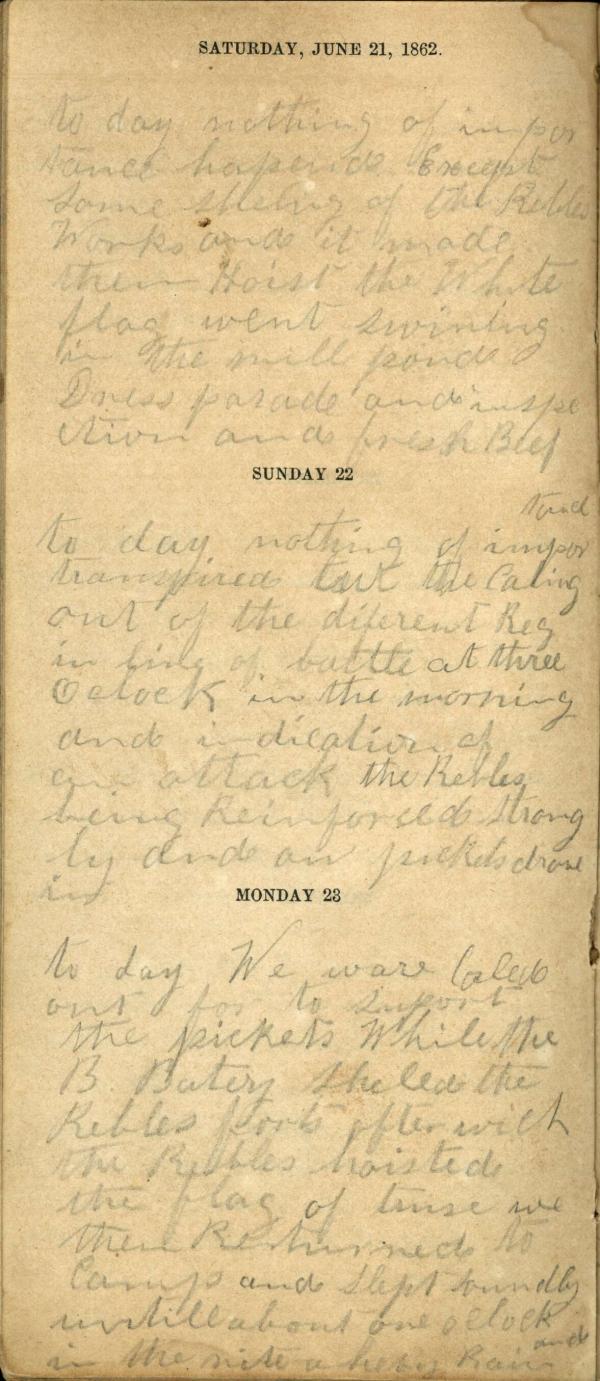 SATURDAY, JUNE 21, 1862.
to day nothing of impor
tance hapend Except
Some sheling of the Rebles
Works and it made
them Hoist the White
flag went swiming
in the mill pond
Dress parade and inspe
ction and fresh Beef
SUNDAY 22
tand
to day nothing of impor
transpired but the Caling
out of the diferent Reg
in ling of battle at three
Oclock in the morning
and indication of
an attack the Rebles
being Reinforced strong
ly and our pickets drove
in
MONDAY 23
to day We ware Caled
out for to suport
the pickets While the
B. Batery Sheled the
Rebles forts after wich
the Rebles hoisted
the flag of truse we
then Returned to
Camp and slept soundly
untill about one oclock
and
in the nite a hevy Rain